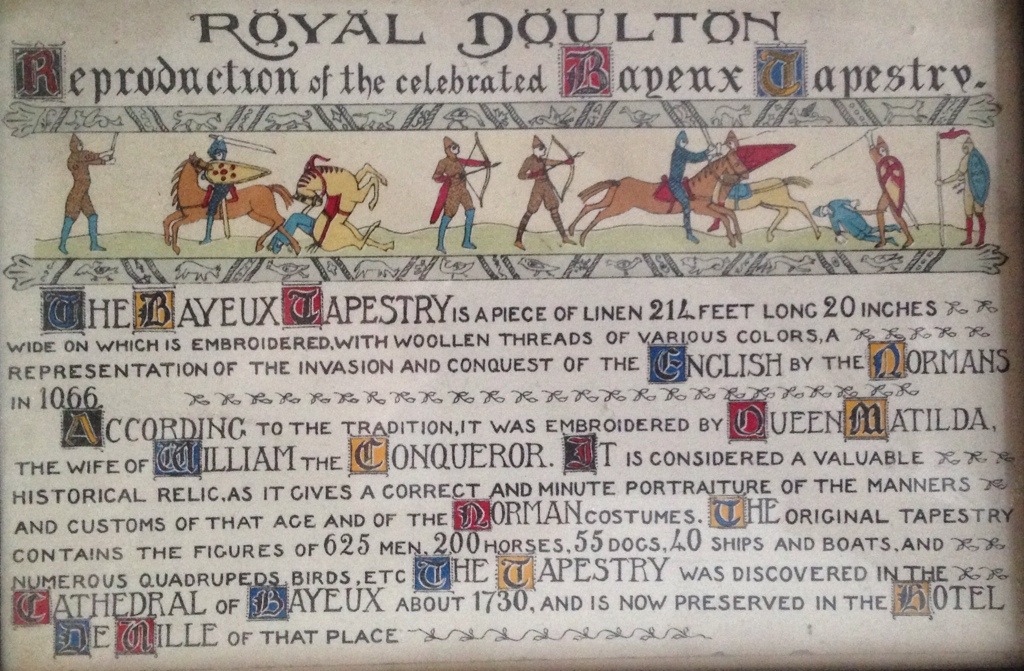 ROYAL DOULTON
Reproduction of the celebrated Bayeux Tapestry.
THE BAYEUX TAPESTRY IS A PIECE OF LINEN 214 FEET LONG 20 INCHES
WIDE ON WHICH IS EMBROIDERED, WITH WOOLLEN THREADS OF VARIOUS COLORS, A
REPRESENTATION OF THE INVASION AND CONQUEST OF THE ENGLISH BY THE NORMANS
IN 1066.
ACCORDING TO THE TRADITION, IT WAS EMBROIDERED BY QUEEN MATILDA,
THE WIFE OF WILLIAM THE CONQUEROR. IT IS CONSIDERED A VALUABLE
HISTORICAL RELIC, AS IT GIVES A CORRECT AND MINUTE PORTRAITURE OF THE MANNERS
AND CUSTOMS OF THAT AGE AND OF THE NORMAN COSTUMES. THE ORIGINAL TAPESTRY
CONTAINS THE FIGURES OF 625 MEN, 200 HORSES, 55 DOGS, 40 SHIPS AND BOATS, AND
NUMEROUS QUADRUPEDS, BIRDS, ETC THE TAPESTRY WAS DISCOVERED IN THE
CATHEDRAL OF BAYEUX ABOUT 1730, AND IS NOW PRESERVED IN THE HOTEL
DE VILLE OF THAT PLACE